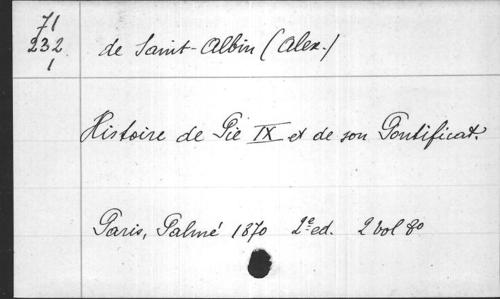 71
232
1
de Saint-Albin (Alex.)
Histoire de Pie IX et de son Pontificat.
Paris, Palmé 1870 2e ed. 2 vol 8o